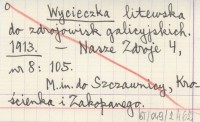 Wycieczka litewska
do zdrojowisk galicyjskich.
1913. — Nasze Zdroje 4,
nr 8: 105.
M.in. do Szczawnicy, Kro-
ścienka i Zakopanego.